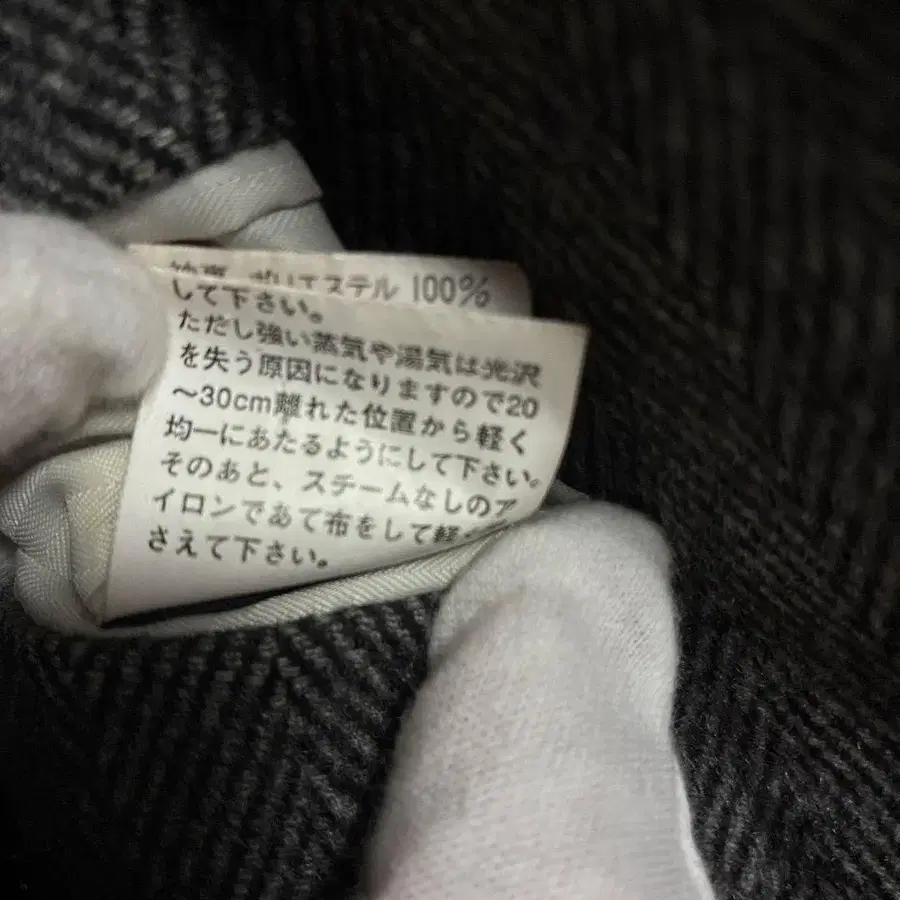 ポリエステル 100%
して下さい。
ただし強い蒸気や湯気は光沢
を失う原因になりますので20
～30cm離れた位置から軽く
均一にあたるようにして下さい。
そのあと、スチームなしのア
イロンであて布をして軽
さえて下さい。